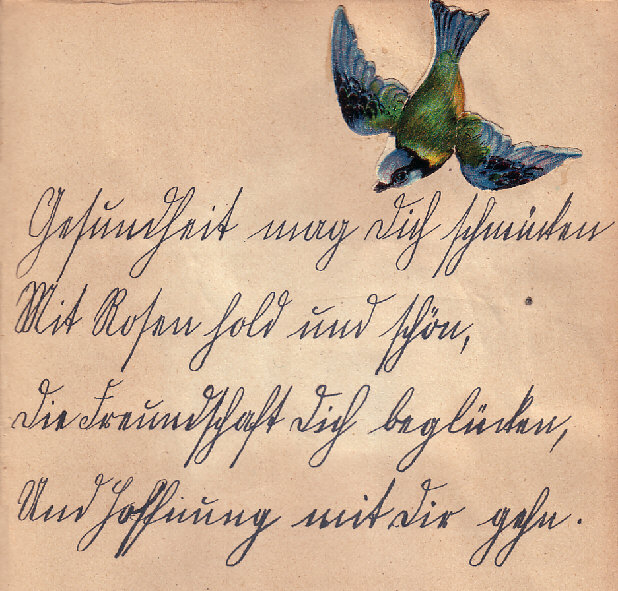 Gesundheit mag Dich schmücken
Mit Rosen hold und schön,
Die Freundschaft Dich beglücken,
Und Hoffnung mit Dir gehn.